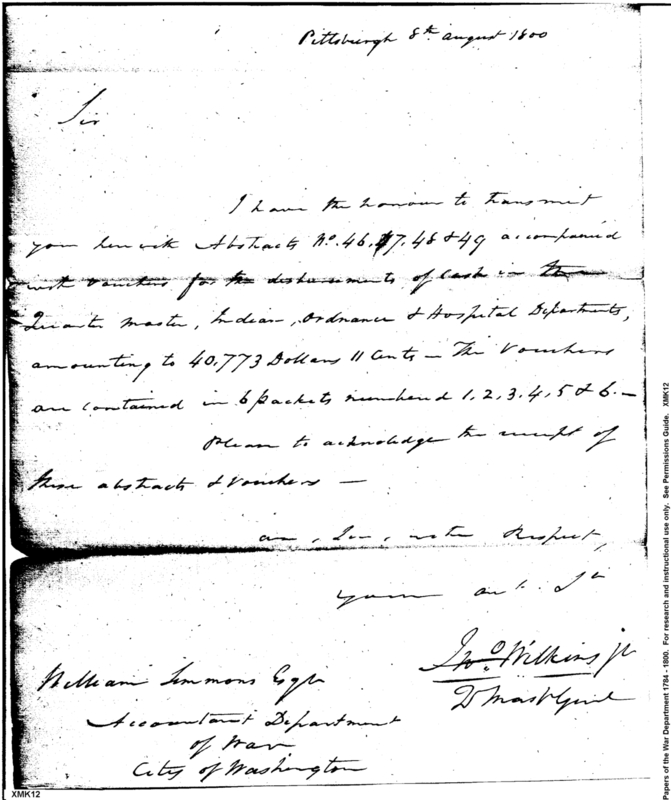 Pittsburgh 8th august 1800
Sir
I have the honour to transmit
you herewith Abstracts No. 46.47.48 & 49 accompanied
with vouchers for the disbursements of Cash in the
Quarter Master, Indian, Ordnance & Hospital Departments,
amounting to 40.773 Dollars 11 Cents – The Vouchers
are contained in 6 packets numbered 1.2.3.4.5 & 6. –
Please to acknoledge the receipt of
these abstracts & vouchers —
am, Sir, with Respect,
your
Jno. Wilkins jr
William Simmons Esqr
Accountant Department
of War
City of Washington
XMK12
Papers of the War Department 1784 - 1800. For research and instructional use only. See Permissions Guide. XMK12